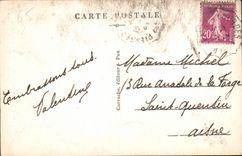 CARTE POSTALE
20
Embrassons tous.
Valentine
Carrache, éditeur, Pau
Madame Michel
3 Rue Anatole de la Forge
Saint-Quentin
Aisne